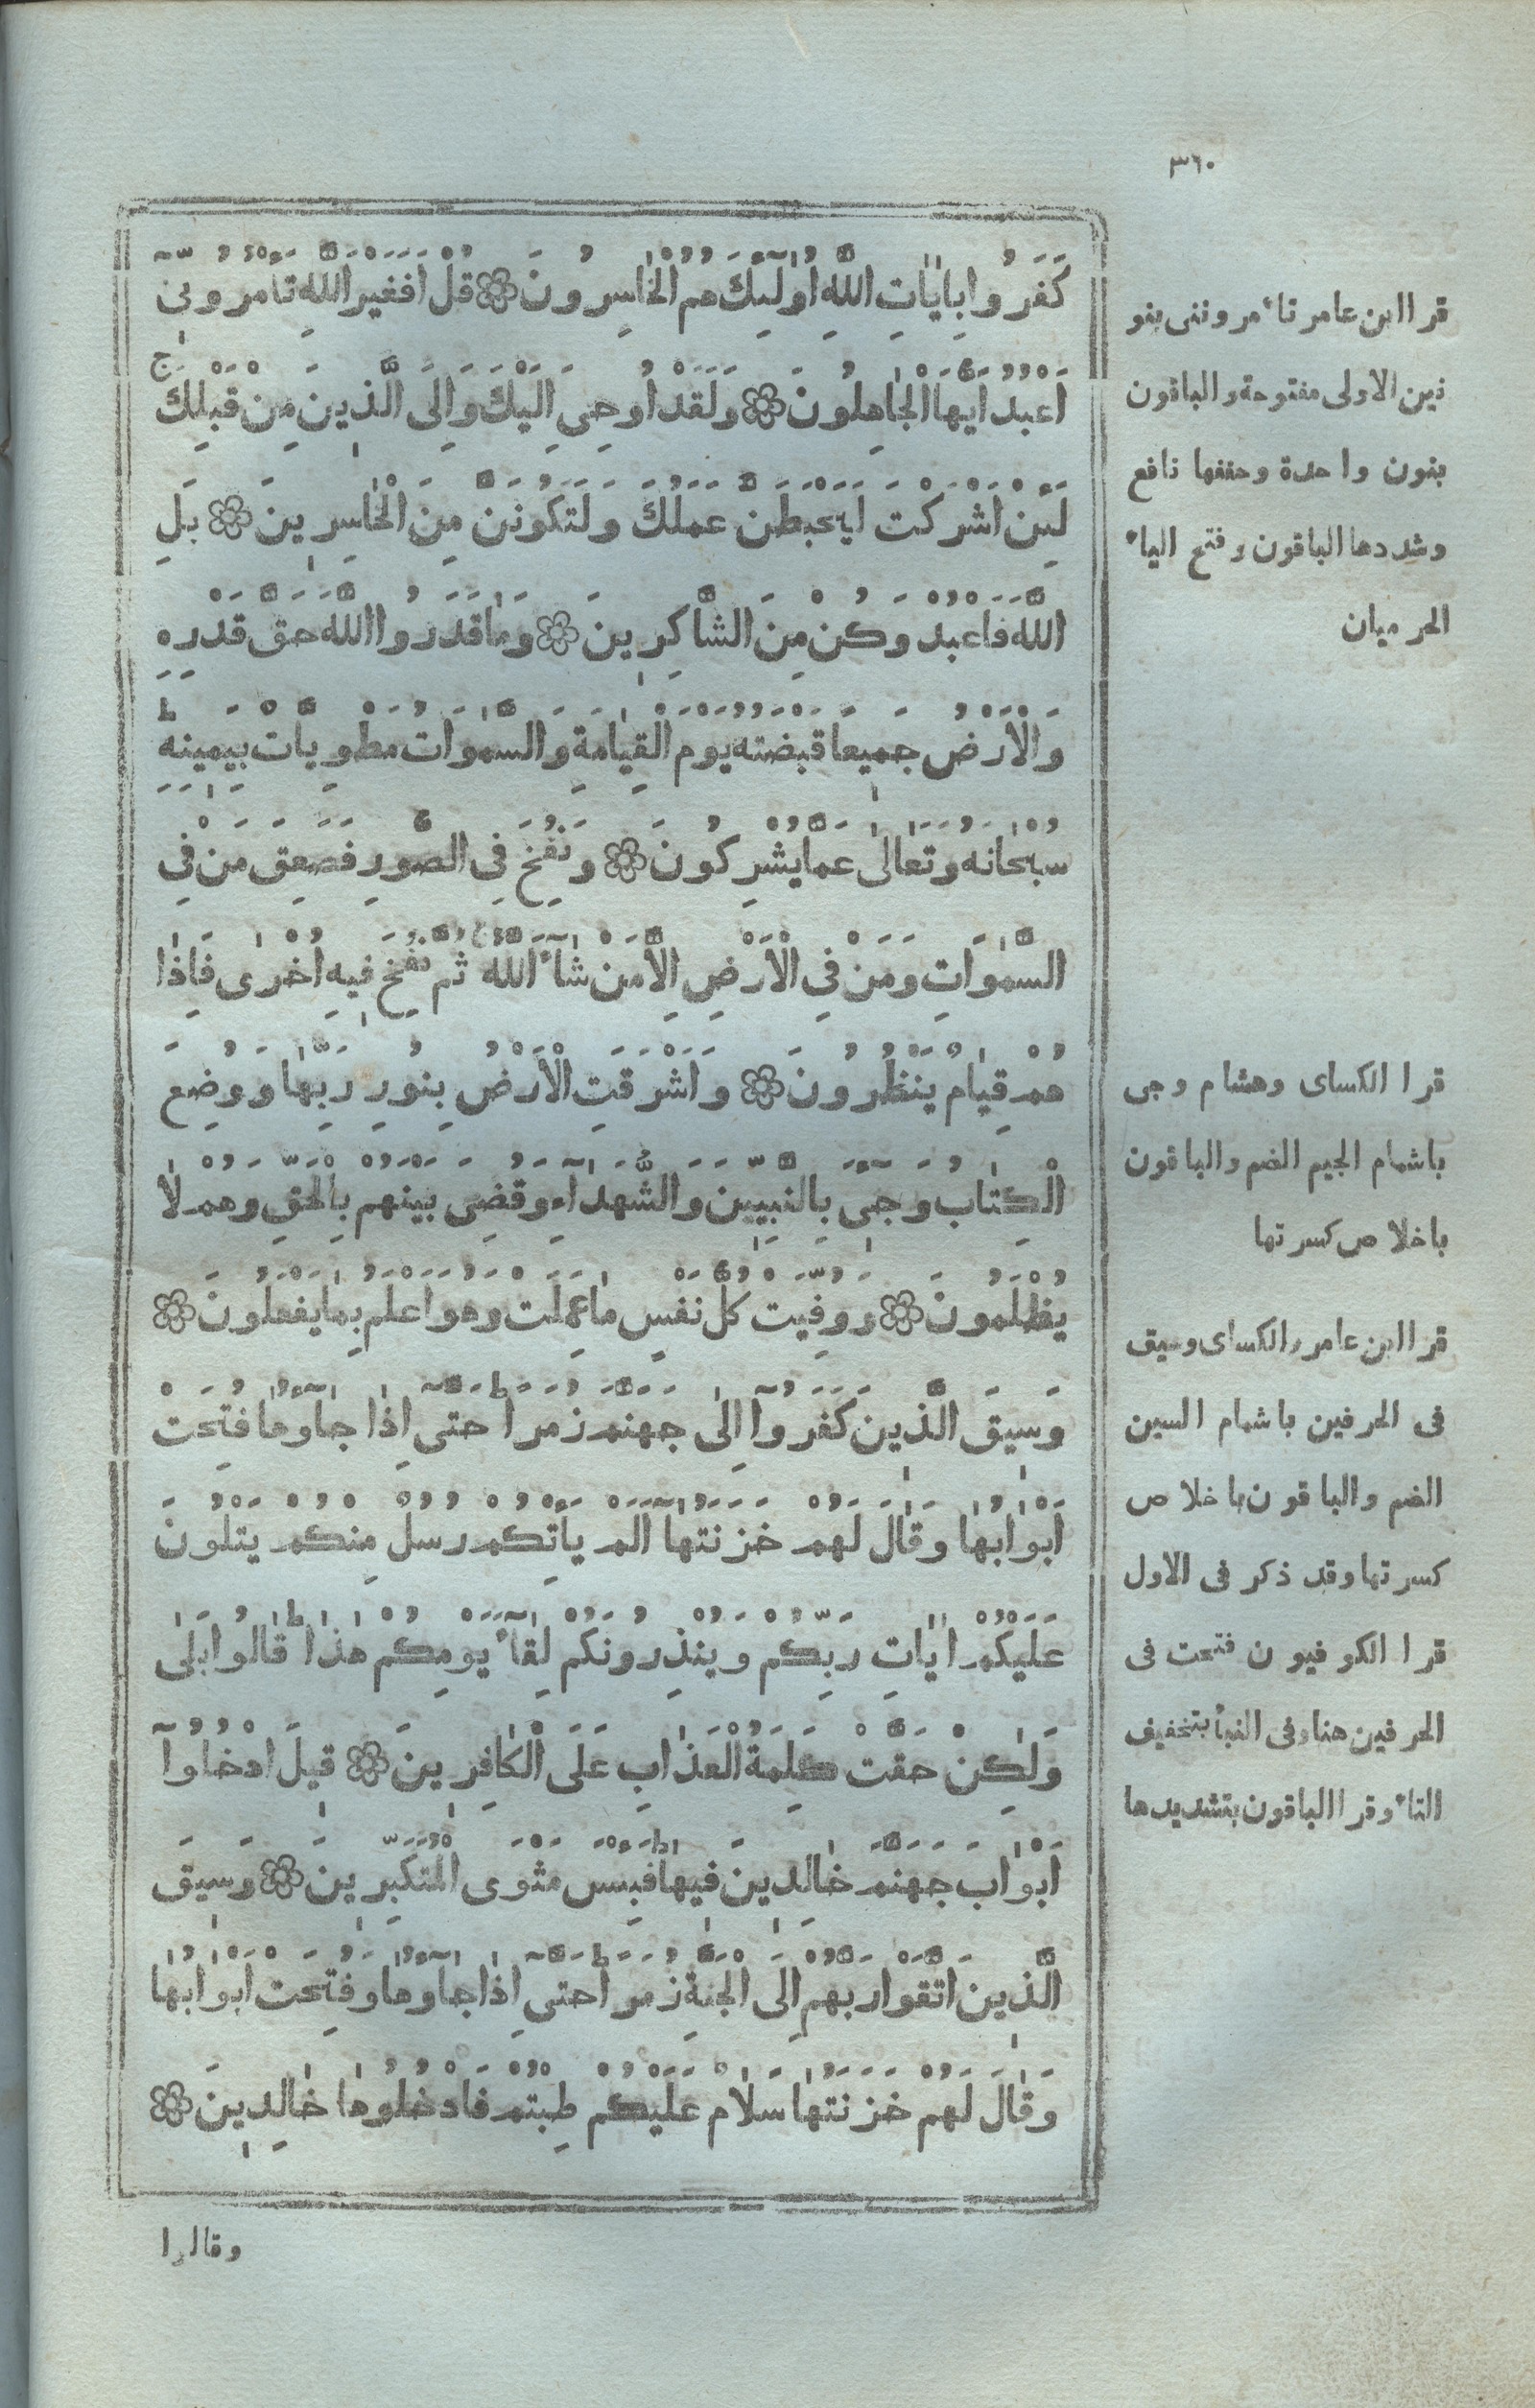 ٣٦٠
كَفَرُوا بِاٰيَاتِ اللّٰهِ اُولٰٓئِكَ هُمُ الْخَاسِرُونَ ۞ قُلْ اَفَغَيْرَ اللّٰهِ تَاْمُرُوٓنّ۪ٓي
اَعْبُدُ اَيُّهَا الْجَاهِلُونَ ۞ وَلَقَدْ اُوحِيَ اِلَيْكَ وَاِلَى الَّذ۪ينَ مِنْ قَبْلِكَۚ
لَئِنْ اَشْرَكْتَ لَيَحْبَطَنَّ عَمَلُكَ وَلَتَكُونَنَّ مِنَ الْخَاسِر۪ينَ ۞ بَلِ
اللّٰهَ فَاعْبُدْ وَكُنْ مِنَ الشَّاكِر۪ينَ ۞ وَمَا قَدَرُوا اللّٰهَ حَقَّ قَدْرِه۪
وَالْاَرْضُ جَم۪يعًا قَبْضَتُهُ يَوْمَ الْقِيٰمَةِ وَالسَّمٰوَاتُ مَطْوِيَّاتٌ بِيَم۪ينِه۪ۜ
سُبْحَانَهُ وَتَعَالٰى عَمَّا يُشْرِكُونَ ۞ وَنُفِخَ فِي الصُّورِ فَصَعِقَ مَنْ فِي
السَّمٰوَاتِ وَمَنْ فِي الْاَرْضِ اِلَّا مَنْ شَٓاءَ اللّٰهُ ثُمَّ نُفِخَ ف۪يهِ اُخْرٰى فَاِذَا
هُمْ قِيَامٌ يَنْظُرُونَ ۞ وَاَشْرَقَتِ الْاَرْضُ بِنُورِ رَبِّهَا وَوُضِعَ
الْكِتَابُ وَج۪ٓيءَ بِالنَّبِيّ۪نَ وَالشُّهَدَٓاءِ وَقُضِيَ بَيْنَهُمْ بِالْحَقِّ وَهُمْ لَا
يُظْلَمُونَ ۞ وَوُفِّيَتْ كُلُّ نَفْسٍ مَا عَمِلَتْ وَهُوَ اَعْلَمُ بِمَا يَفْعَلُونَ ۞
وَس۪يقَ الَّذ۪ينَ كَفَرُٓوا اِلٰى جَهَنَّمَ زُمَرًاۜ حَتّٰٓى اِذَا جَٓاؤُهَا فُتِحَتْ
اَبْوَابُهَا وَقَالَ لَهُمْ خَزَنَتُهَٓا اَلَمْ يَأْتِكُمْ رُسُلٌ مِنْكُمْ يَتْلُونَ
عَلَيْكُمْ اٰيَاتِ رَبِّكُمْ وَيُنْذِرُونَكُمْ لِقَٓاءَ يَوْمِكُمْ هٰذَاۜ قَالُوا بَلٰى
وَلٰكِنْ حَقَّتْ كَلِمَةُ الْعَذَابِ عَلَى الْكَافِر۪ينَ ۞ ق۪يلَ ادْخُلُٓوا
اَبْوَابَ جَهَنَّمَ خَالِد۪ينَ ف۪يهَاۜ فَبِئْسَ مَثْوَى الْمُتَكَبِّر۪ينَ ۞ وَس۪يقَ
الَّذ۪ينَ اتَّقَوْا رَبَّهُمْ اِلَى الْجَنَّةِ زُمَرًاۜ حَتّٰٓى اِذَا جَٓاؤُهَا وَفُتِحَتْ اَبْوَابُهَا
وَقَالَ لَهُمْ خَزَنَتُهَا سَلَامٌ عَلَيْكُمْ طِبْتُمْ فَادْخُلُوهَا خَالِد۪ينَ ۞
وقالوا
قرا ابن عامر تاءمروننى بنو
نين الاولى مفتوحة والباقون
بنون واحدة وخففها نافع
وشددها الباقون وفتح الياء
الحرميان
قرا الكساى وهشام وجى
باشمام الجيم الضم والباقون
باخلاص كسرتها
قرا ابن عامر والكساى وسيق
فى الحرفين باشمام السين
الضم والباقون باخلاص
كسرتها وقد ذكر فى الاول
قرا الكوفيون فتحت فى
الحرفين هنا وفى النبأ بتخفيف
التاء وقرا الباقون بتشديدها